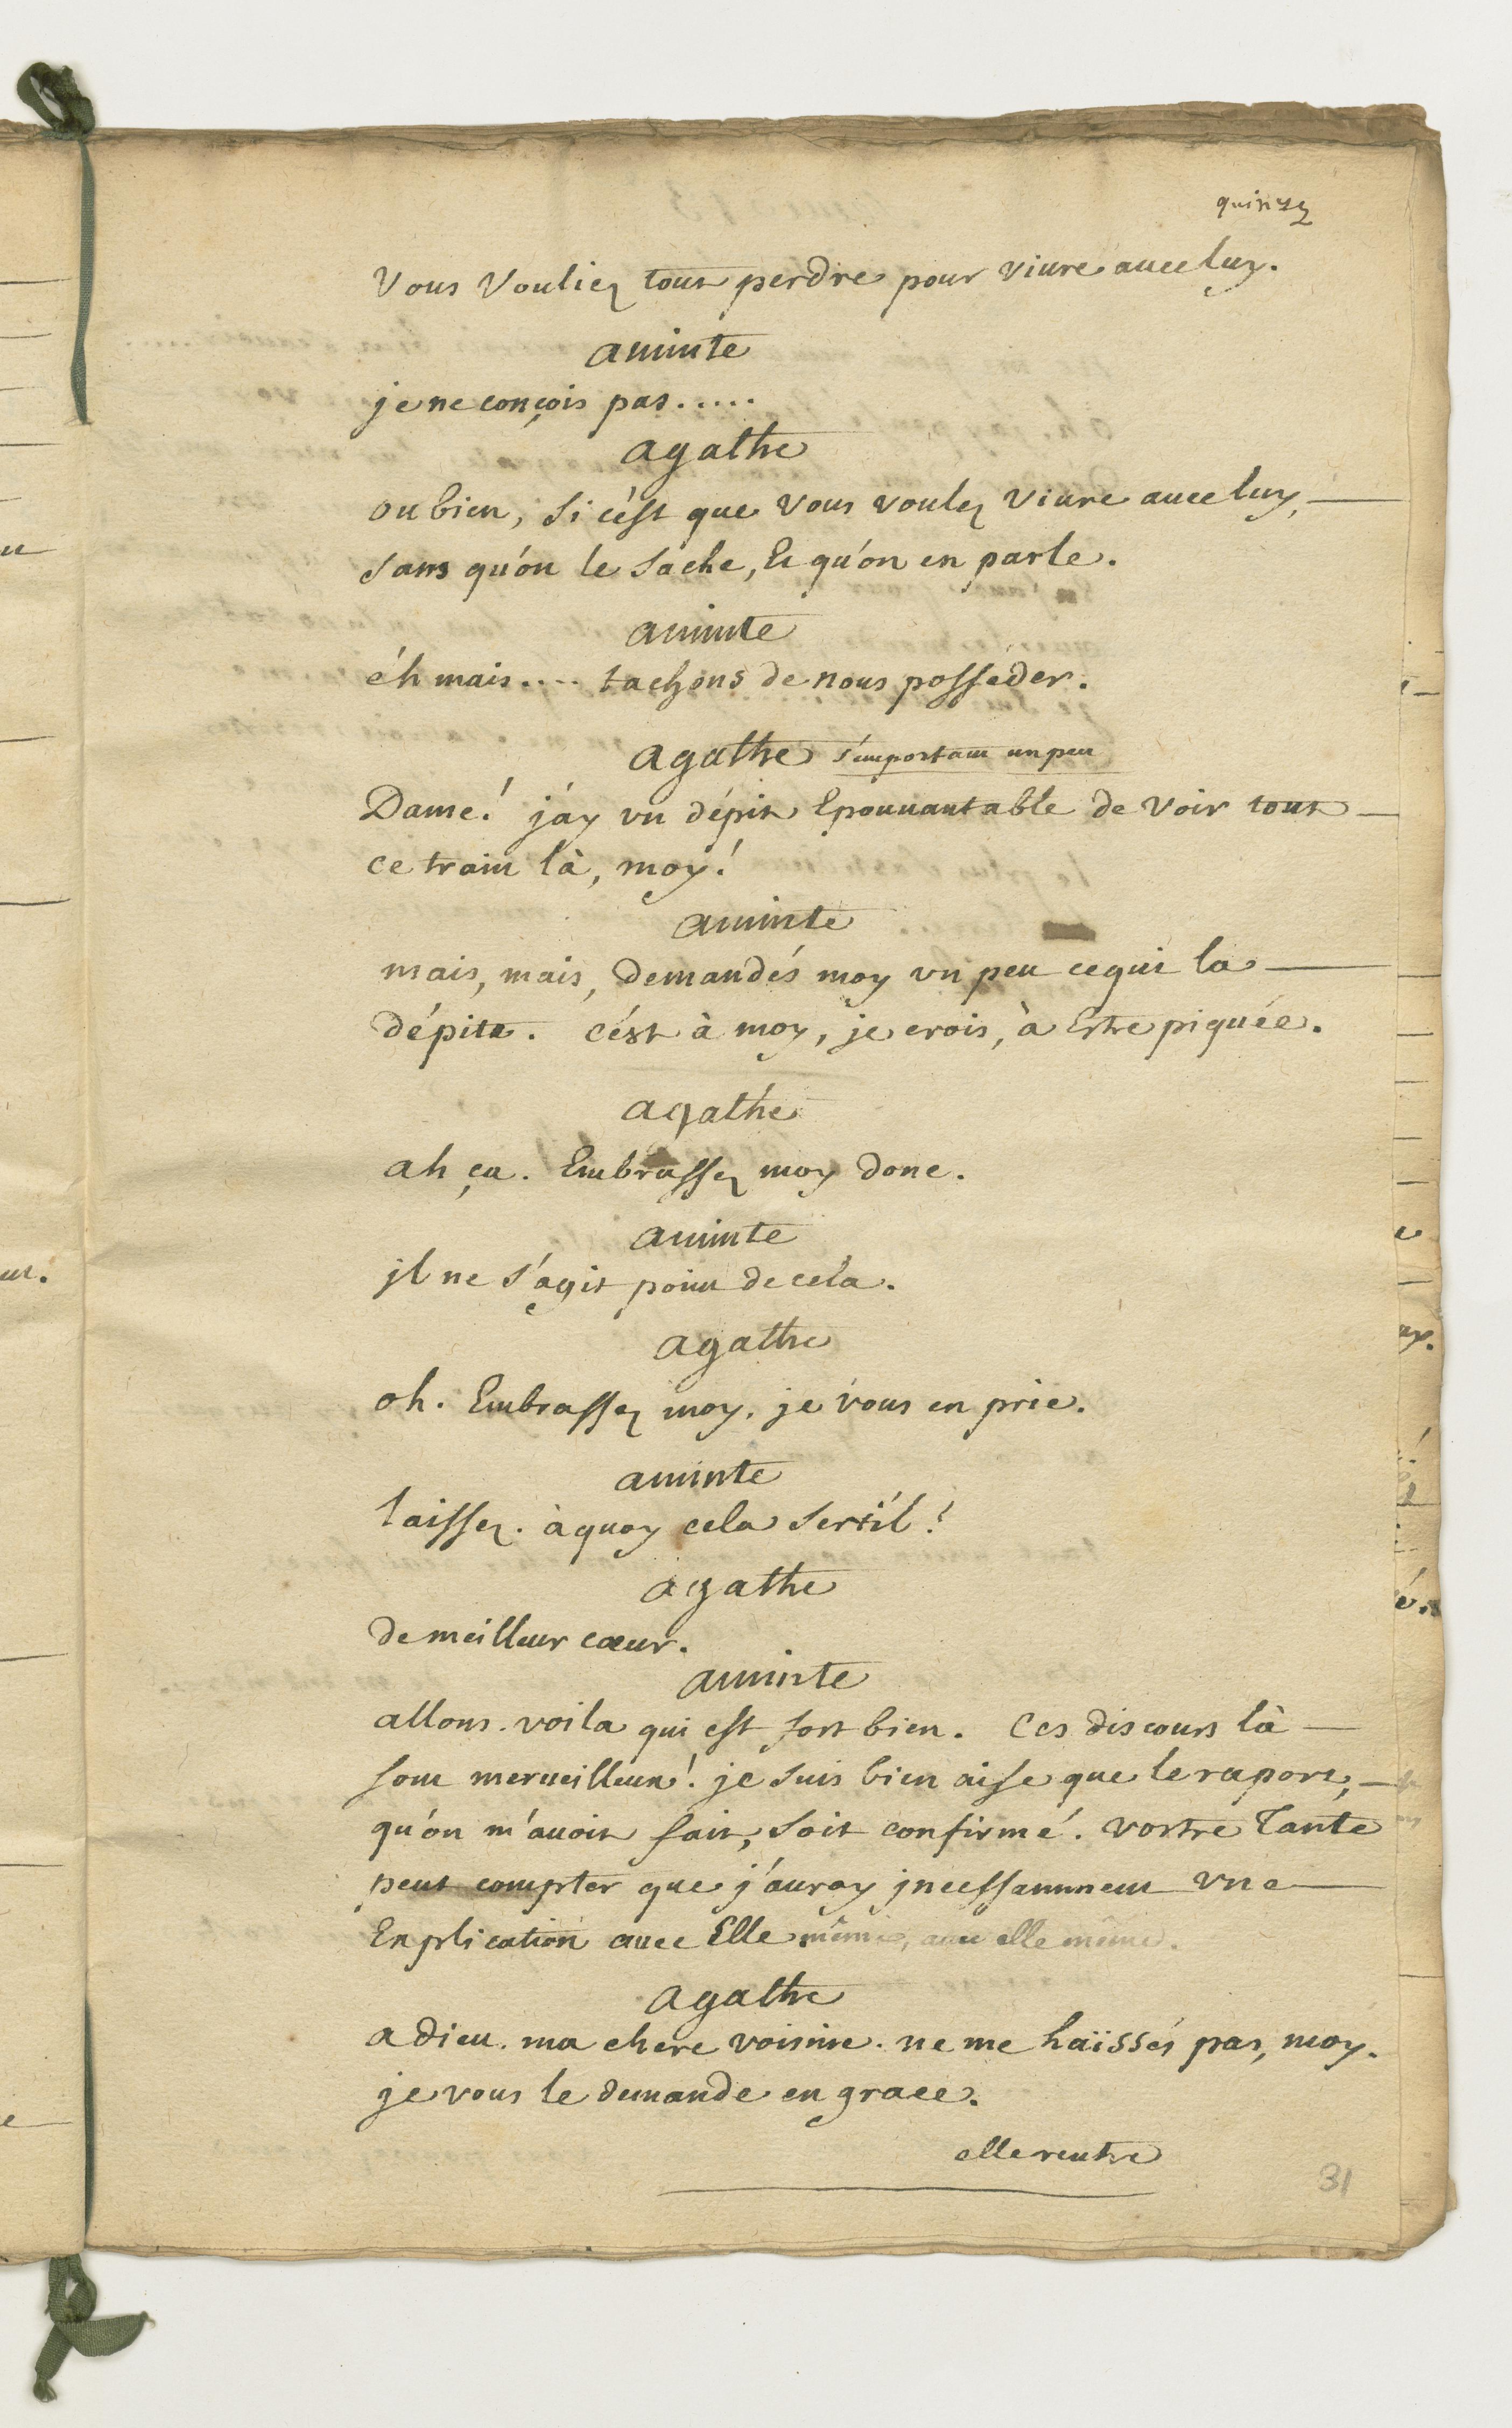 quinze
Vous Vouliez tout perdre pour viure auec luy.
aminte
je ne conçois pas.....
agathe
ou bien, si c'est que vous voulez viure auec luy,
sans qu'on le sache, Et qu'on en parle.
aminte
éh mais.... tachons de nous posséder.
agathe s'emportant un peu
Dame! j'ay vn dépit Epouuantable de voir tout
ce train là, moy!
aminte
mais, mais, demandés moy vn peu cequi la
dépite. c'ést à moy, je crois, à Estre piquée.
agathe
ah ça. Embrassez moy donc.
aminte
jl ne s'agit point de cela.
agathe
oh. Embrassez moy. je vous en prie.
aminte
laissez. à quoy cela sert il?
agathe
de meilleur cœur.
aminte
allons. voila qui est fort bien. Ces discours là
sont merueilleux! je suis bien aise que le raport,
qu'on m'auoit fait, soit confirmé. vostre Tante
peut compter que j'auray jncessamment vne
Explication auec Elle même, auec elle même.
agathe
adieu. ma chere voisine. ne me haïssés pas, moy.
je vous le demande en grace.
elle rentre
31